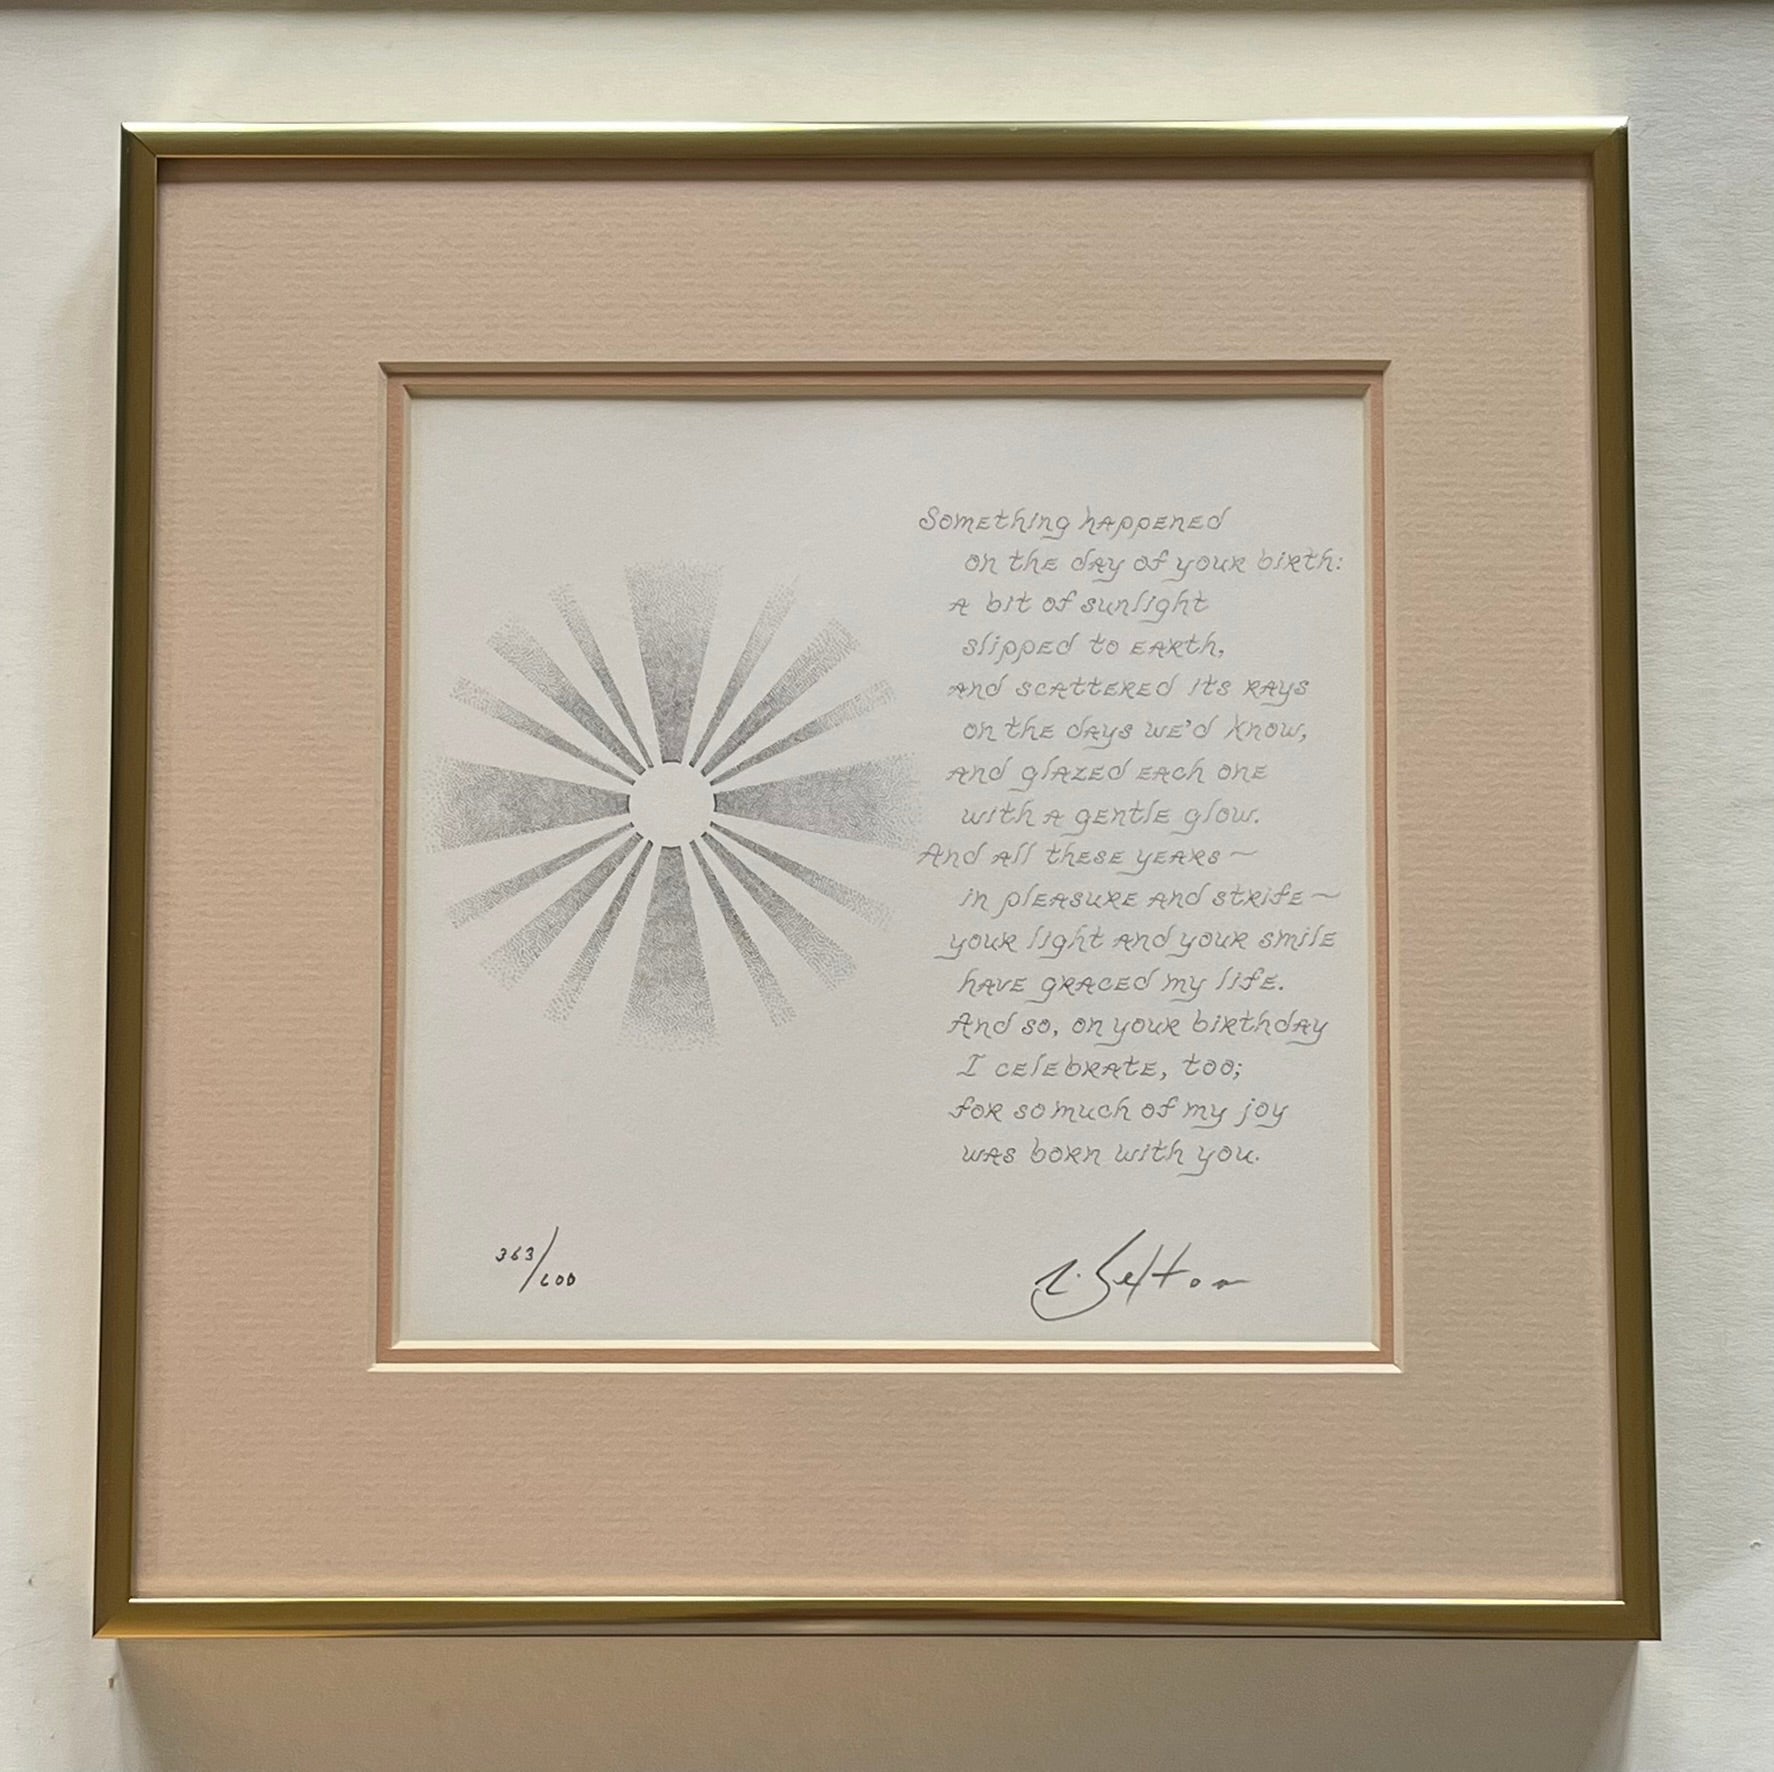 Something happened
on the day of your birth:
A bit of sunlight
slipped to earth,
And scattered its rays
on the days we'd know,
And glazed each one
with a gentle glow.
And all these years ~
in pleasure and strife ~
your light and your smile
have graced my life.
And so, on your birthday
I celebrate, too;
for so much of my joy
was born with you.
363/600